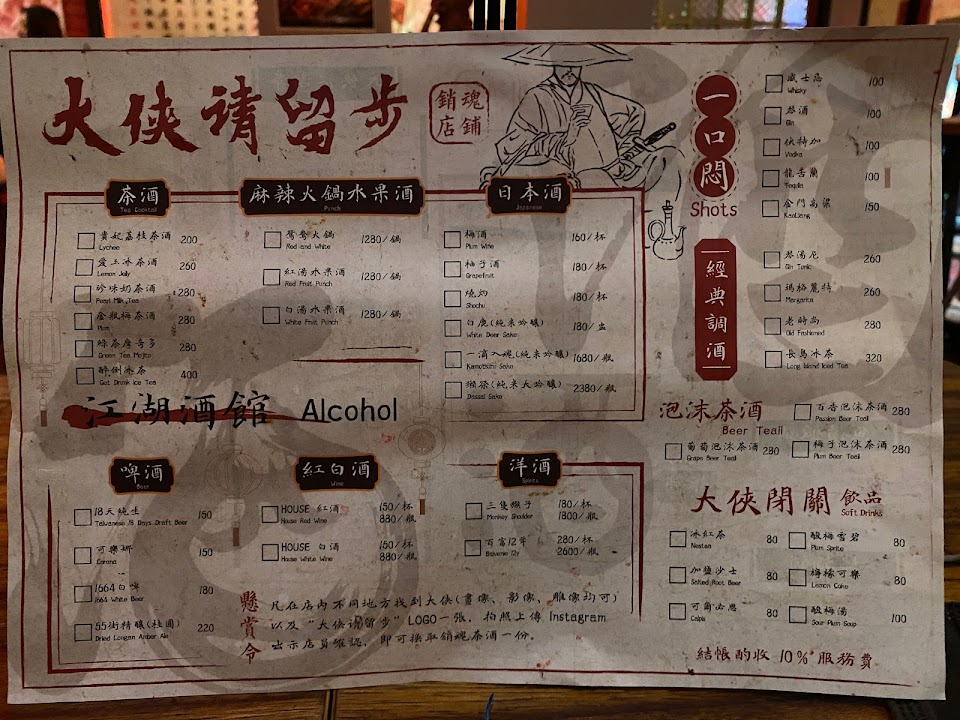 大俠请留步
銷魂
店鋪
茶酒
Tea Cocktail
貴妃荔枝茶酒 200
Lychee
愛玉冰茶酒 260
Lemon Jelly
珍味奶茶酒 280
Pearl Milk Tea
金瓶梅茶酒 280
Plum
綠茶摩奇多 280
Green Tea Mojito
醉倒冰茶 400
Get Drunk Ice Tea
麻辣火鍋水果酒
Punch
鴛鴦火鍋 1280/鍋
Red and White
紅湯水果酒 1280/鍋
Red Fruit Punch
白湯水果酒 1280/鍋
White Fruit Punch
日本酒
Japanese
梅酒 160/杯
Plum Wine
柚子酒 180/杯
Grapefruit
燒灼 180/杯
Shochu
白鹿(純米吟釀) 180/盅
White Deer Sake
一滴入魂(純米吟釀) 1680/瓶
Kamotsuru Sake
獺祭(純米大吟釀) 2380/瓶
Dassai Sake
江湖酒館 Alcohol
啤酒
Beer
18天純生 150
Taiwanese 18 Days Draft Beer
可樂娜 150
Corona
1664白啤 180
1664 White Beer
55街精釀(桂圓) 220
Dried Longan Amber Ale
紅白酒
Wine
HOUSE 紅酒 150/杯
House Red Wine 880/瓶
HOUSE 白酒 150/杯
House White Wine 880/瓶
洋酒
Spirits
三隻猴子 180/杯
Monkey Shoulder 1800/瓶
百富12年 280/杯
Balvenie 12y 2600/瓶
懸賞令
凡在店內不同地方找到大俠(畫像、影像、雕像均可)
以及"大俠请留步"LOGO一張，拍照上傳 Instagram
出示店員確認，即可換取銷魂茶酒一份。
一口悶
Shots
威士忌 100
Whisky
琴酒 100
Gin
伏特加 100
Vodka
龍舌蘭 100
Tequila
金門高粱 150
Kaoliang
經典調酒
琴湯尼 260
Gin Tonic
瑪格麗特 260
Margarita
老時尚 280
Old Fashioned
長島冰茶 320
Long Island Iced Tea
泡沫茶酒
Beer Teail
百香泡沫茶酒 280
Passion Beer Teail
葡萄泡沫茶酒 280
Grape Beer Teail
梅子泡沫茶酒 280
Plum Beer Teail
大俠閉關 飲品
Soft Drinks
冰紅茶 80
Nestea
酸梅雪碧 80
Plum Sprite
加鹽沙士 80
Salted Root Beer
檸檬可樂 80
Lemon Coke
可爾必思 80
Calpis
酸梅湯 100
Sour Plum Soup
結帳酌收 10%服務費